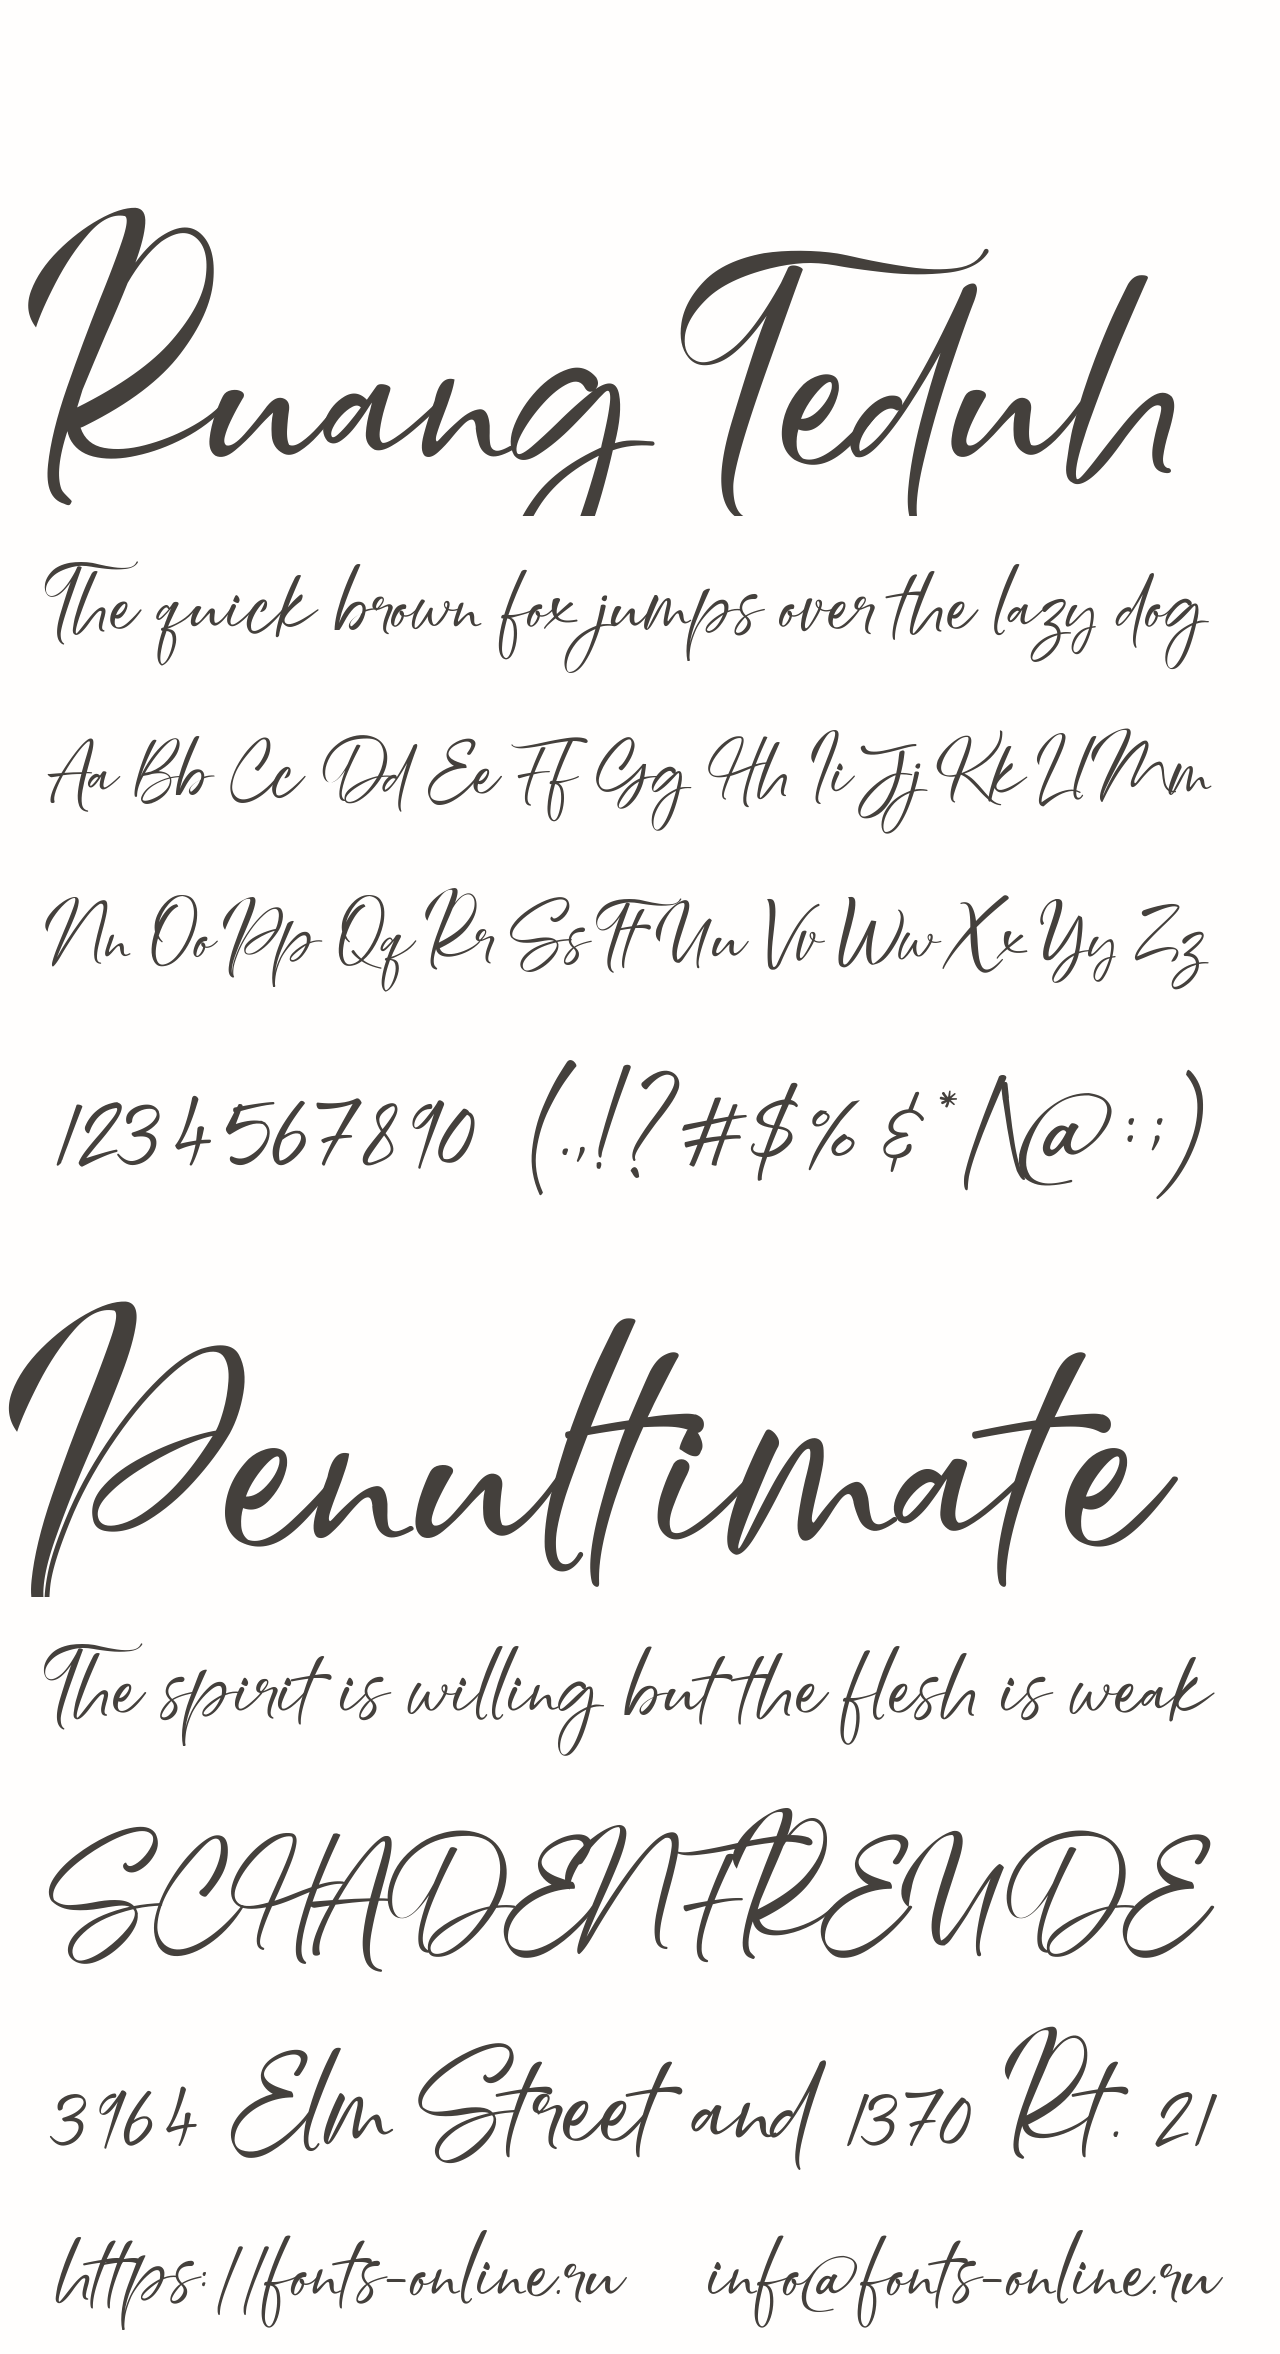 Ruang Teduh
The quick brown fox jumps over the lazy dog
Aa Bb Cc Dd Ee Ff Gg Hh Ii Jj Kk Ll Mm
Nn Oo Pp Qq Rr Ss Tt Uu Vv Ww Xx Yy Zz
1234567890 (.,!?#$% &*/\@:;)
Penultimate
The spirit is willing but the flesh is weak
SCHADENFREUDE
3964 Elm Street and 1370 Rt. 21
https://fonts-online.ru info@fonts-online.ru